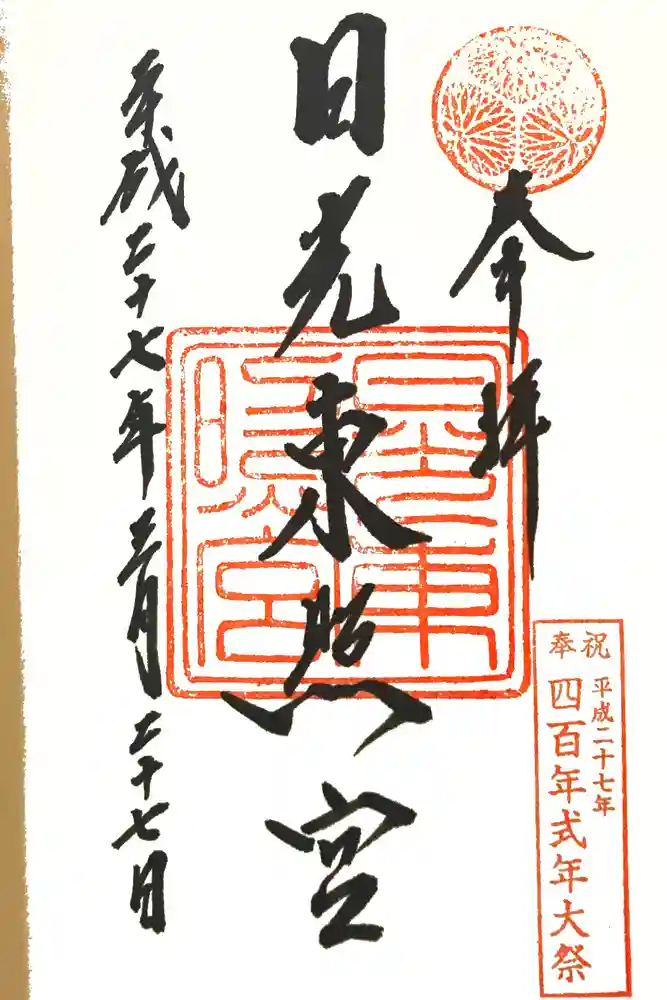 奉拝
日光東照宮
平成二十七年三月二十七日
奉祝
平成二十七年
四百年式年大祭
日光東
照宮